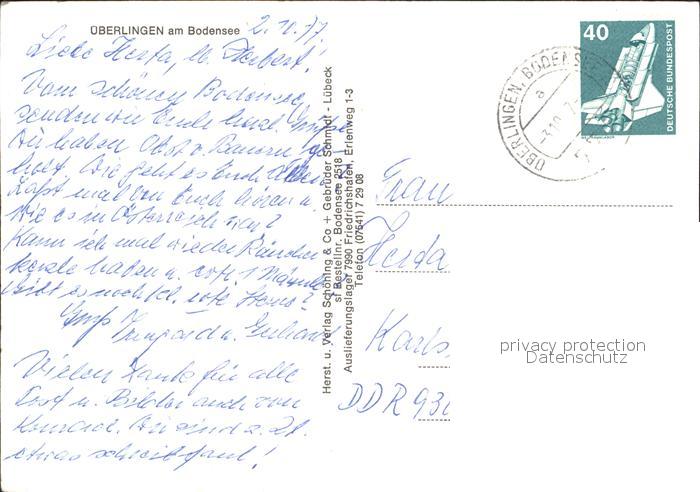 ÜBERLINGEN am Bodensee
2.10.77
Liebe Herta, lb. Herbert!
Vom schönen Bodensee
senden wir Euch herzl. Grüße
Wir haben Obst v. Bauern ge
holt. Wie geht es Euch allen
Laßt mal von Euch hören u.
wie es in Österreich war?
Kann ich mal wieder Räucher
kerzle haben u. evtl. 1 Männle
gibt es noch kl. rote Sterne?
Gruß Irmgard u. Gerhard
Vielen Dank für alle
Post u. Bilder auch von
Konrad. Wir sind z. Zt.
etwas schreibfaul!
Herst. u. Verlag Schöning & Co + Gebrüder Schmidt - Lübeck
sl Bestellnr. Bodensee 2518
Auslieferungslager 7990 Friedrichshafen, Erlenweg 1-3
Telefon (07541) 7 29 08
40
DEUTSCHE BUNDESPOST
ÜBERLINGEN, BODENSEE
a
-3.10.7
Frau
Herta
Karls
DDR 93
privacy protection
Datenschutz